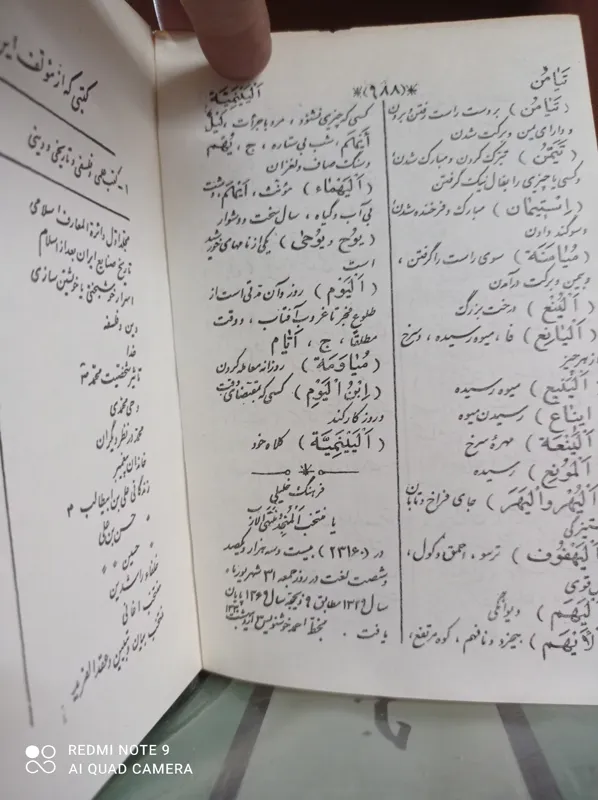 تَیَامُن
*(۹۸۸)*
اَلْیَنَمِیَّة
(تَیَامُن) بردست راست رفتن وبرون
و دارای یمن و برکت شدن
(تَیَمُّن) تبرک کردن و مبارک شدن
وکسی یا چیزی را بفال نیک گرفتن
(اِسْتِیمَان) مبارک و فرخنده شدن
وسوگند دادن
(مُیَامَنَة) سوی راست را گرفتن ،
و بیمن و برکت درآمدن
(اَلْیَنْع) درخت بزرگ
(اَلْیَانِع) فا ، میوه رسیده ، و سرخ
از هر چیز
(اَلْیَنِیع) میوه رسیده
(اِینَاع) رسیدن میوه
(اَلْیَنَعَة) مهرهٔ سرخ
(اَلْمُونِع) رسیده
(اَلْیَهْر و اَلْیَهَر) جای فراخ
وستیزگی
(اَلْیَهْفُوف) ترسو ، احمق و کول ،
قوی
(اَلْیَهَم) دیوانگی
(اَلْاَیْهَم) بی‌خرد و نافهم ، کوه مرتفع ،
کسی که چیزی نشنود ، مرد با جرأت ، کیل
اَیْهَم ، شب بی ستاره ، ج ، یُهْم
وسنگ صاف و لغزان
(اَلْیَهْمَاء) مؤنث ، اَیْهَم ، ودشت
بی آب وگیاه ، سال سخت و دشوار
(یُوح و یُوحَی) یکی از نامهای خورشید
است
(اَلْیَوْم) روز و آن مدتی است از
طلوع فجر تا غروب آفتاب ، و وقت
مطلقاً ، ج ، اَیَّام
(مُیَاوَمَة) روزانه معامله کردن
(اِبْنُ الْیَوْم) کسی که بمقتضای وقت
و روز کار کند
(اَلْیَنَمِیَّة) کلاه خود
فرهنگ خلیلی
یا منتخب اَلْمُنْجِد و مُنْتَهَی الْاَرَب
در (۲۳۱۶۰) بیست و سه هزار و یکصد
و شصت لغت در روز جمعه ۳۱ شهریور ماه
سال ۱۳۲۹ مطابق ۹ ذیحجه سال ۱۳۶۹ پایان
یافت . بخط احمد خوشنویس اردیبهشت
کتبی که از مؤلف این
۱ - کتب علمی و فلسفی و تاریخی و دینی
مجلد اول دائرة المعارف اسلامی
تاریخ صنایع ایران بعد از اسلام
اسرار خوشبختی یا خویشتن سازی
دین و فلسفه
خدا
تاثیر شخصیت محمد ص
وحی محمدی
محمد در نظر دیگران
خاندان پیغمبر
زندگانی علی بن ابیطالب ع
" حسن بن علی
" حسین " "
خلفاء راشدین
منتخب اغانی
منتخب بیان و تبیین و عقد الفرید
REDMI NOTE 9
AI QUAD CAMERA